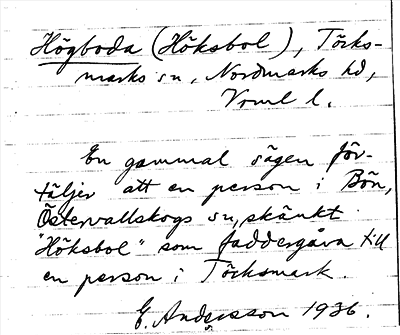 Högboda (Höksbol), Töcks-
marks sn, Nordmarks hd,
Vrml l.
En gammal sägen för-
täljer att en person i Bön,
Östervallskogs sn, skänkt
"Höksbol" som faddergåva till
en person i Töcksmark.
E. Andersson 1936.